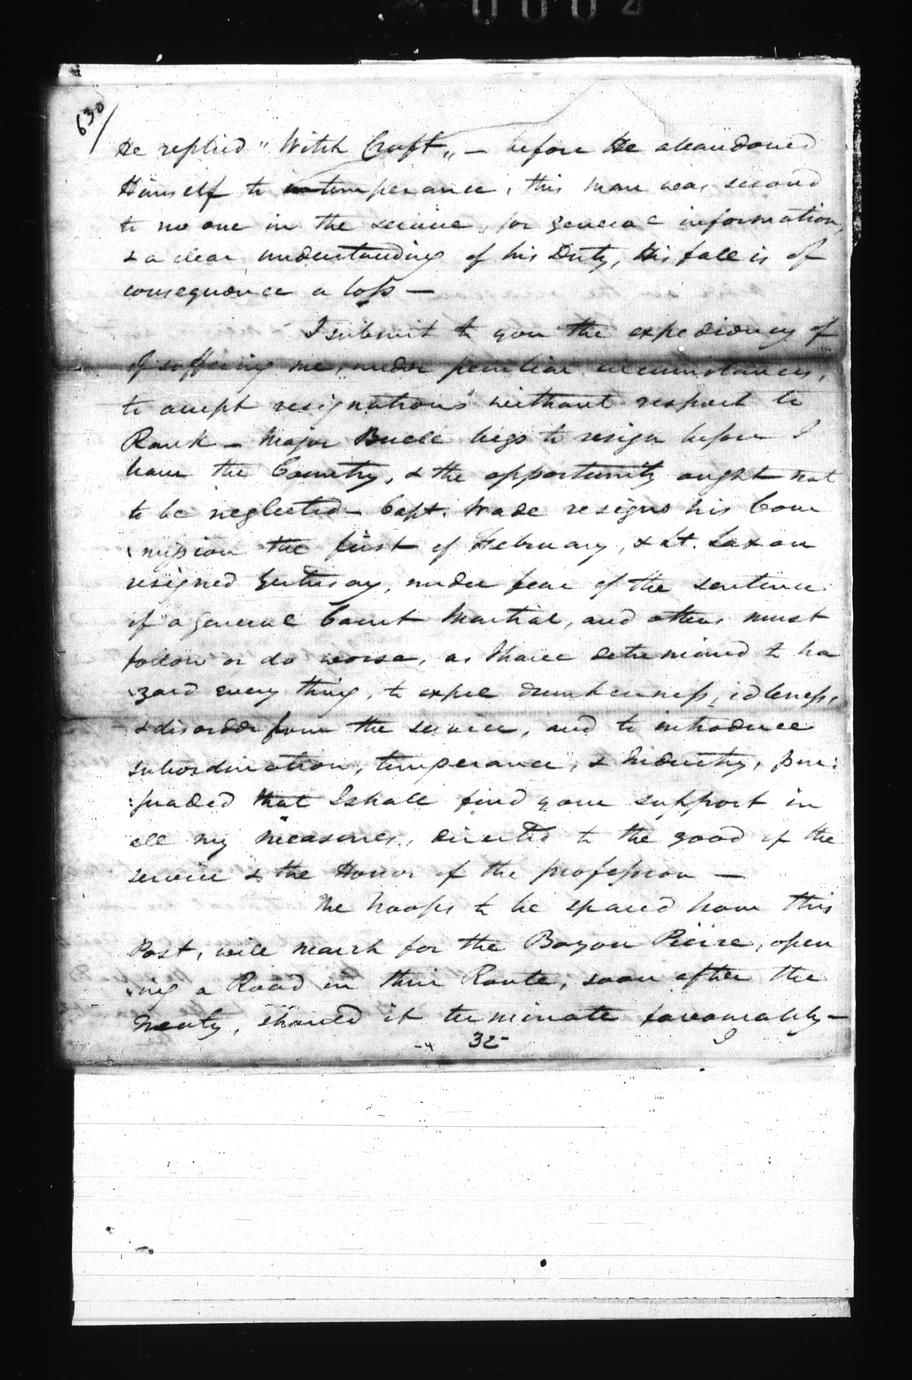 0002
630/
He replied "Witch Craft" — before He abandoned
Himself to intemperance, this man was second
to no one in the service, for general information,
& a clear understanding of his Duty, His fall is of
consequence a loss —
I submit to you the expediency of
of suffering me, under peculiar circumstances,
to accept resignations without respect to
Rank — Major Buell begs to resign before I
leave the Country, & the opportunity ought not
to be neglected — Capt. Wade resigns his Com
:mission the first of February, & Lt. Saxon
resigned yesterday, under fear of the sentence
of a general Court Martial, and others must
follow or do worse, as I have determined to ha
:zard every thing, to expel drunkenness, idleness,
& disorder from the service, and to introduce
subordination, temperance, & Industry, per:
:suaded that I shall find your support in
all my measures, directed to the good of the
service & the Honor of the profession —
The troops to be spared from this
Post, will march for the Bayou Pierre, open
:ing a Road in their Route, soon after the
Treaty, should it terminate favourably —
32 I